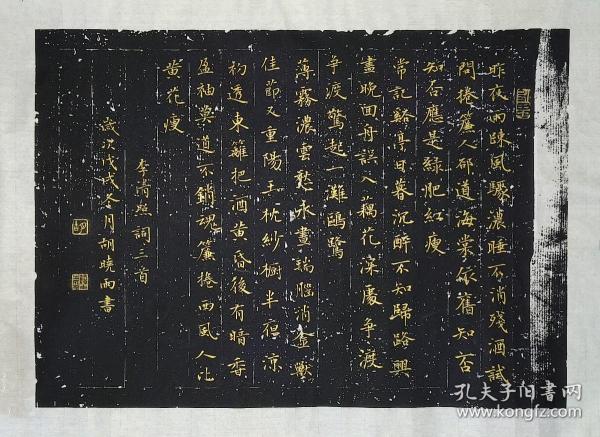 昨夜雨踈風驟濃睡不消殘酒試
問捲簾人卻道海棠依舊知否
知否應是綠肥紅瘦
常記谿亭日暮沉醉不知歸路興
盡晚回舟誤入藕花深處爭渡
爭渡驚起一灘鷗鷺
薄霧濃雲愁永晝瑞腦消金獸
佳節又重陽玉枕紗櫥半夜涼
初透東籬把酒黃昏後有暗香
盈袖莫道不銷魂簾捲西風人比
黃花瘦
李清照詞三首
歲次戊戌冬月胡曉雨書
孔夫子旧书网
www.kongfz.com